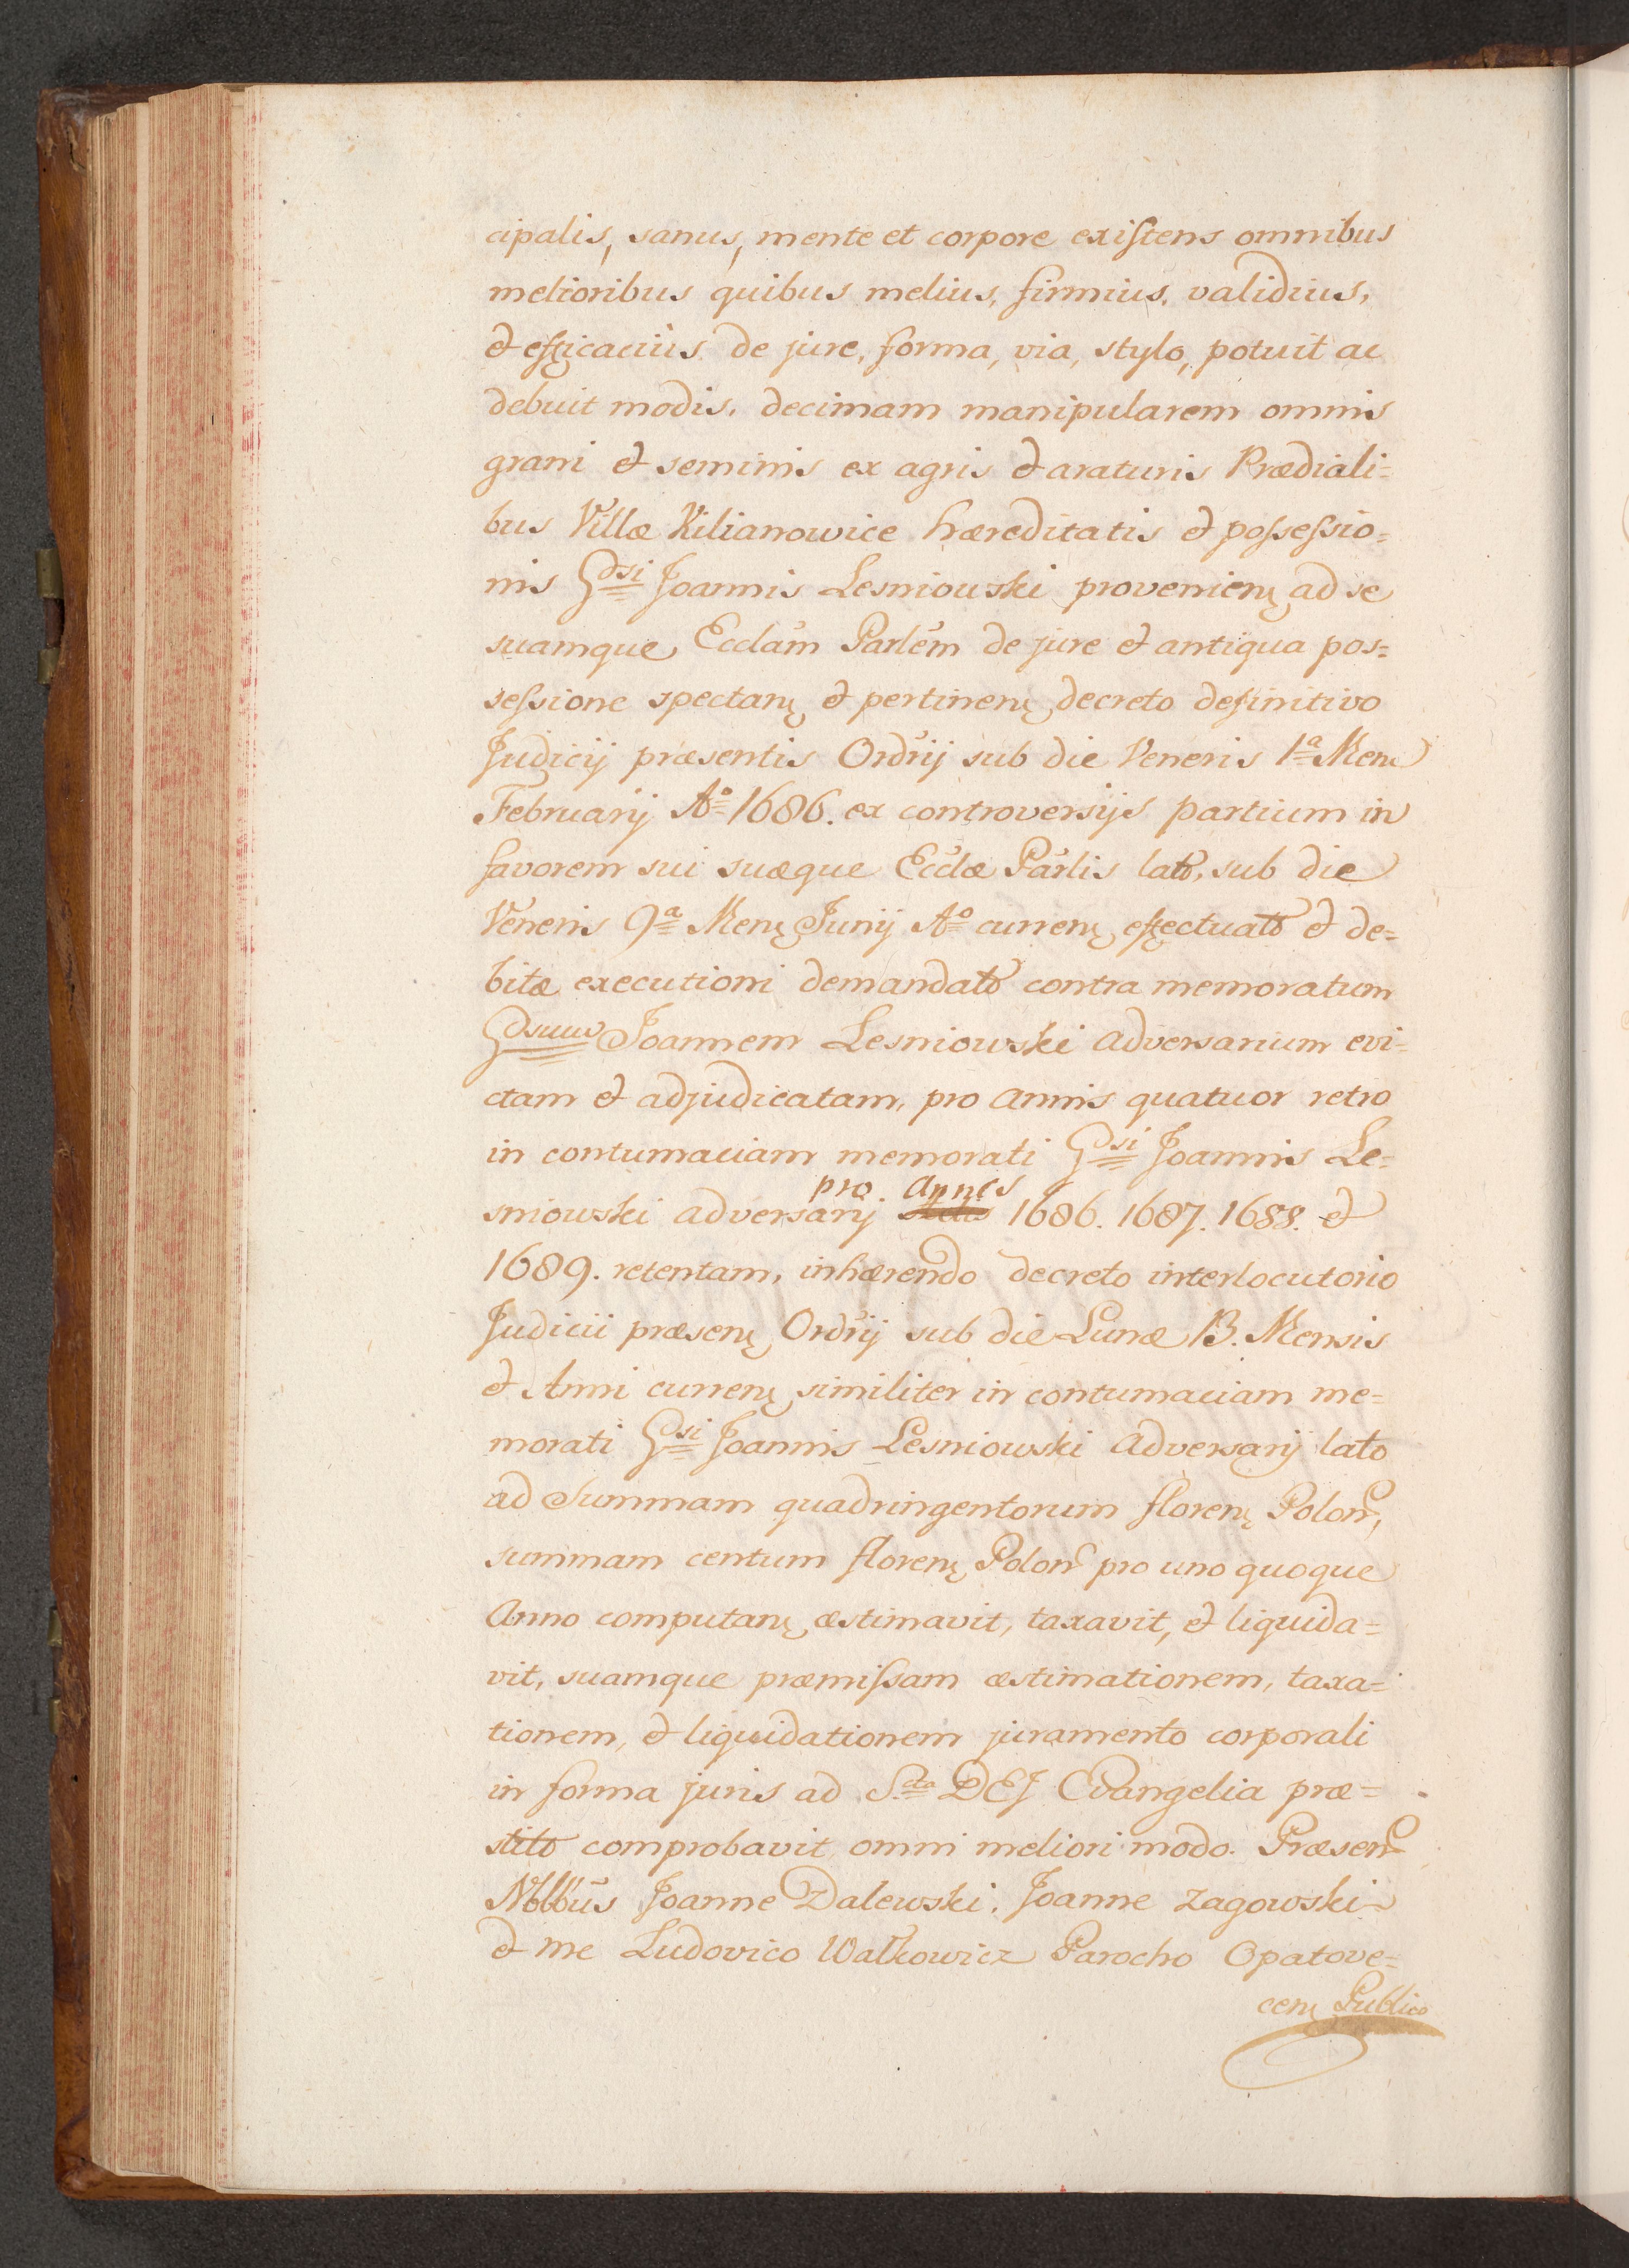 cipalis, sanus, mente et corpore existens omnibus
melioribus quibus melius, firmius, validius,
et efficacius de jure, forma, via, stylo, potuit ac
debuit modis, decimam manipularem omnis
grani et seminis ex agris et araturis Prædiali=
bus Villæ Kilianowice hæreditatis et possessio=
nis Gdsi Joannis Lesniowski provenienȩ ad se
suamque Ecclãm Parlẽm de jure et antiqua pos=
sessione spectanȩ et pertinenȩ decreto definitivo
Judicij præsentis Ordrij sub die Veneris 1ª Menȩ
Februarij Aº 1686. ex controversijs partium in
favorem sui suæque Ecclæ Parlis lato, sub die
Veneris 9ª Menȩ Junij Aº currenȩ effectuato et de=
bitæ executioni demandato contra memoratum
Gdsum Joannem Lesniowski adversarium evi=
ctam et adjudicatam, pro annis quatuor retro
in contumaciam memorati Gdsi Joannis Le=
sniowski adversarij pro Annis 1686. 1687. 1688. et
1689. retentam, inhærendo decreto interlocutorio
Judicii præsenȩ Ordrij sub die Lunæ 13. Mensis
et Anni currenȩ similiter in contumaciam me=
morati Gsi Joannis Lesniowski Adversarij lato
ad Summam quadringentorum florenȩ Polon,
summam centum florenȩ Polon pro uno quoque
Anno computanȩ æstimavit, taxavit, et liquida=
vit, suamque præmissam æstimationem, taxa=
tionem, et liquidationem juramento corporali
in forma juris ad Scta DEJ Evangelia præ=
stito comprobavit omni meliori modo. Præsen
Nobbus Joanne Dalewski, Joanne Zagowski
et me Ludovico Walkowicz Parocho Opatove=
cenȩ Publico